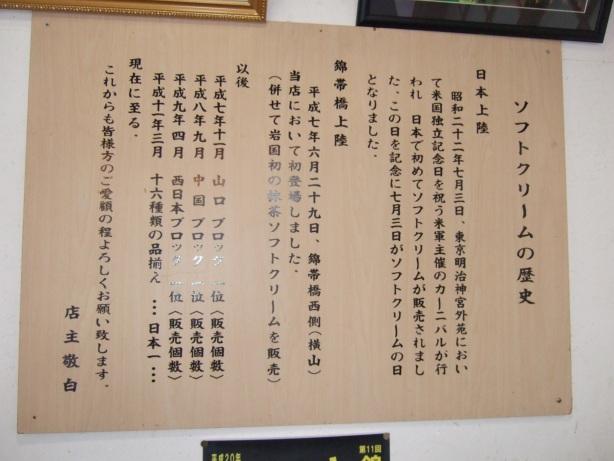 ソフトクリームの歴史
日本上陸
昭和二十二年七月三日、東京明治神宮外苑におい
て米国独立記念日を祝う米軍主催のカーニバルが行
われ 日本で初めてソフトクリームが販売されまし
た．この日を記念に七月三日がソフトクリームの日
となりました．
錦帯橋上陸
平成七年六月二十九日、錦帯橋西側（横山）
当店において初登場しました．
（併せて岩国初の抹茶ソフトクリームを販売）
以後
平成七年十一月 山口ブロック 一位〈販売個数〉
平成八年九月 中国ブロック 一位〈販売個数〉
平成九年四月 西日本ブロック 一位〈販売個数〉
平成十一年三月 十六種類の品揃え …日本一…
現在に至る．
これからも皆様方のご愛顧の程よろしくお願い致します．
店主敬白
平成20年
第11回